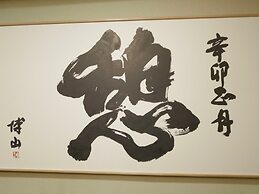 辛卯正月
憩
博山